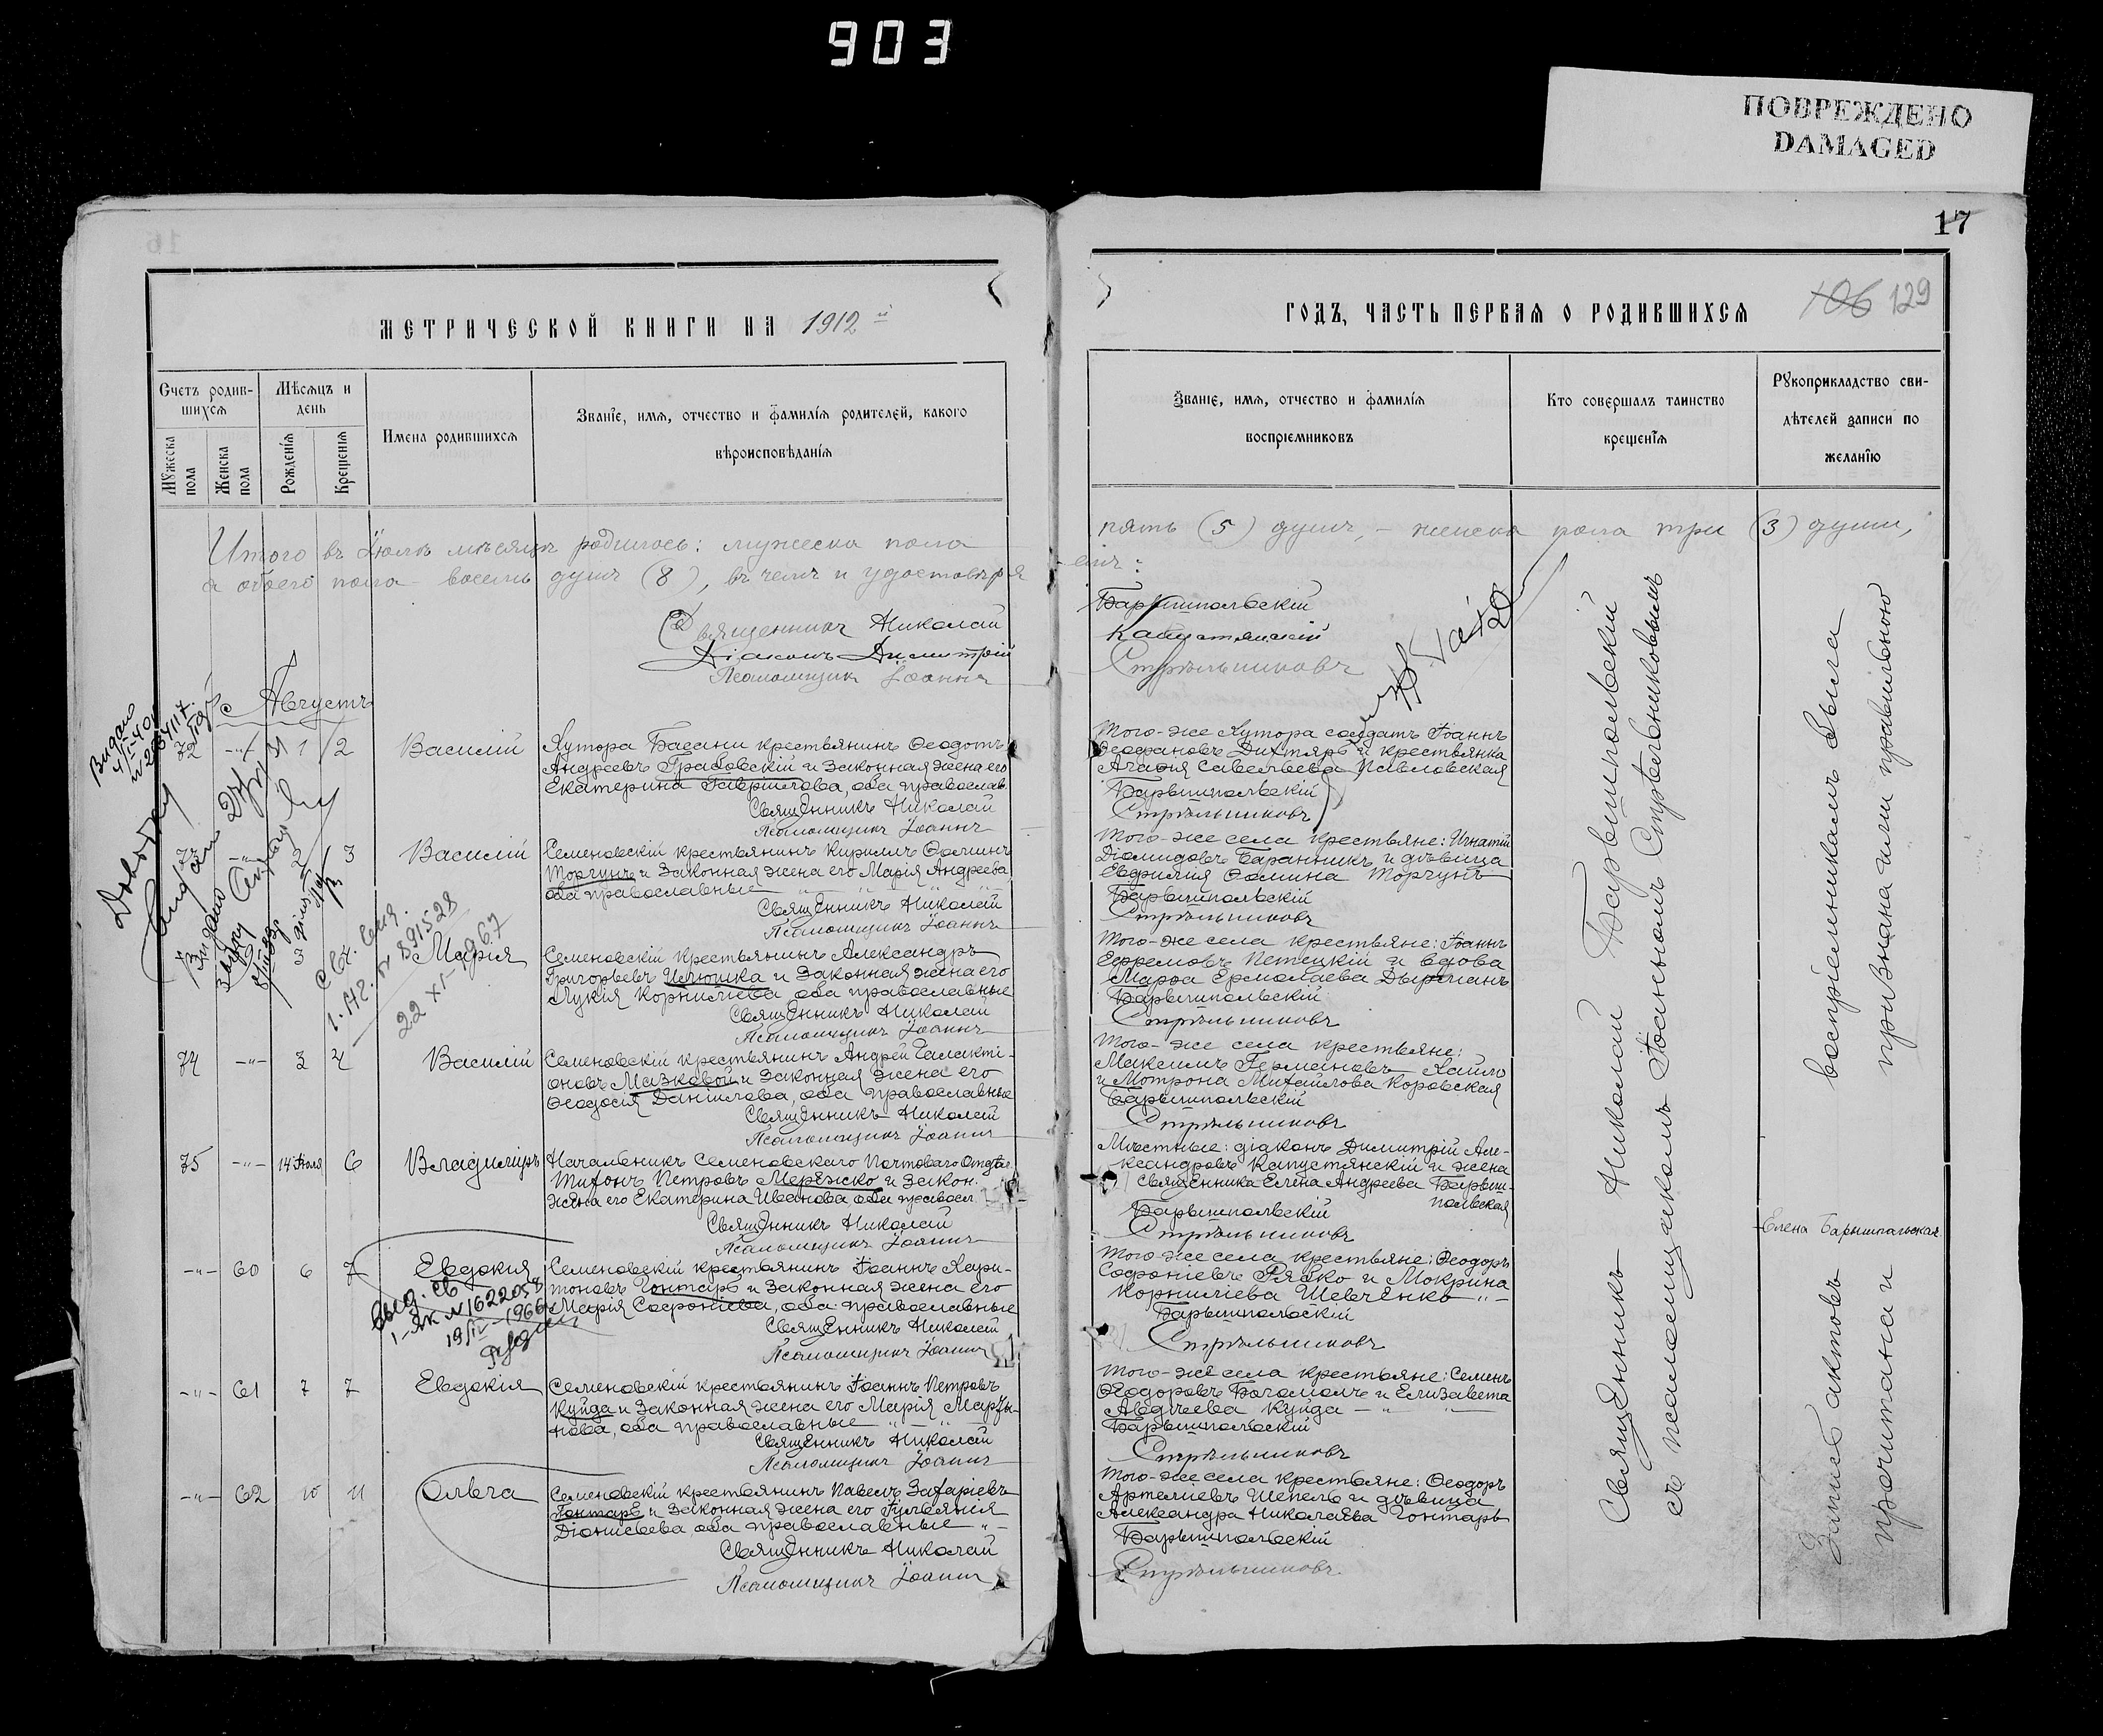 903
ПОВРЕЖДЕНО
DAMAGED
17
МЕТРИЧЕСКОЙ КНИГИ НА 1912 й
Счетъ родив-
шихся
Мѣсяцъ и
день
Мужеска
пола
Женска
пола
Рожденія
Крещенія
Имена родившихся
Званіе, имя, отчество и фамилія родителей, какого
вѣроисповѣданія
Итого въ Іюлѣ мѣсяцѣ родилось: мужеска пола
а обоего пола восемь душъ (8), въ чемъ и удостовѣря
Священникъ Николай
Діаконъ Димитрій
Псаломщикъ Іоаннъ
Августъ
72 -"- 1 2 Василій
Хутора Басани крестьянинъ Ѳеодотъ
Андреевъ Грабовскій и законная жена его
Екатерина Гаврилова, оба православ.
Священникъ Николай
Псаломщикъ Іоаннъ
73 -"- 2 3 Василій
Семеновскій крестьянинъ Кириллъ Ѳоминъ
Торгунъ и законная жена его Марія Андреева
оба православные
Священникъ Николай
Псаломщикъ Іоаннъ
3 Марія
Семеновскій крестьянинъ Александръ
Григорьевъ Илюшка и законная жена его
Лукія Корниліева оба православные
Священникъ Николай
Псаломщикъ Іоаннъ
74 -"- 3 4 Василій
Семеновскій крестьянинъ Андрей Галакті-
оновъ Мазковой и законная жена его
Ѳеодосія Даншлова, оба православные
Священникъ Николай
Псаломщикъ Іоаннъ
75 -"- 14 Іюля 6 Владиміръ
Начальникъ Семеновскаго Почтоваго Отдѣл.
Тихонъ Петровъ Мережко и закон.
жена его Екатерина Иванова, оба правосл.
Священникъ Николай
Псаломщикъ Іоаннъ
-"- 60 6 7 Евдокія
Семеновскій крестьянинъ Іоаннъ Хари-
тоновъ Гонтарь и законная жена его
Марія Софроніева, оба православные
Священникъ Николай
Псаломщикъ Іоаннъ
-"- 61 7 7 Евдокія
Семеновскій крестьянинъ Іоаннъ Петровъ
Куйда и законная жена его Марія Марты-
нова, оба православные
Священникъ Николай
Псаломщикъ Іоаннъ
-"- 62 10 11 Ольга
Семеновскій крестьянинъ Павелъ Захаріевъ
Гонтарь и законная жена его Гульянія
Діонисіева оба православные
Священникъ Николай
Псаломщикъ Іоаннъ
№ 891528
22 XI-1967
выд. св
I-ЯК №1622058
19/IV-1966
ГОДЪ, ЧАСТЬ ПЕРВАЯ О РОДИВШИХСЯ
106 129
Званіе, имя, отчество и фамилія
воспріемниковъ
Кто совершалъ таинство
крещенія
Рукоприкладство сви-
дѣтелей записи по
желанію
пять (5) душъ, - женска пола три (3) души,
-емъ:
Барышпольскій
Капустянскій
Стрѣльниковъ
Того-же Хутора солдатъ Іоаннъ
Ѳеофановъ Дихтярь и крестьянка
Агафія Савельева Павловская
Барышпольскій
Стрѣльниковъ
Того-же села крестьяне: Игнатій
Діомидовъ Баранникъ и дѣвица
Евфимія Ѳомина Торгунъ
Барышпольскій
Стрѣльниковъ
Того-же села крестьяне: Іоаннъ
Ефремовъ Петецкій и вдова
Марфа Ермолаева Дырманъ
Барышпольскій
Стрѣльниковъ
Того-же села крестьяне:
Максимъ Германовъ Хайло
и Мотрона Михайлова Коровская
Барышпольскій
Стрѣльниковъ
Мѣстные: діаконъ Димитрій Але-
ксандровъ Капустянскій и жена
священника Елена Андреева Барыш-
польская
Барышпольскій
Стрѣльниковъ
Того-же села крестьяне: Ѳеодоръ
Софроніевъ Рябко и Мокрина
Корниліева Шевченко
Барышпольскій
Стрѣльниковъ
Того-же села крестьяне: Семенъ
Ѳеодоровъ Богомолъ и Елизавета
Авдѣева Куйда
Барышпольскій
Стрѣльниковъ
Того-же села крестьяне: Ѳеодоръ
Артеміевъ Шепель и дѣвица
Александра Николаева Гонтарь
Барышпольскій
Стрѣльниковъ
Священникъ Николай Барышпольскій
съ псаломщикомъ Іоанномъ Стрѣльниковымъ
Елена Барышпольская
Запись актовъ воспріемникамъ была
прочитана и признана ими правильною